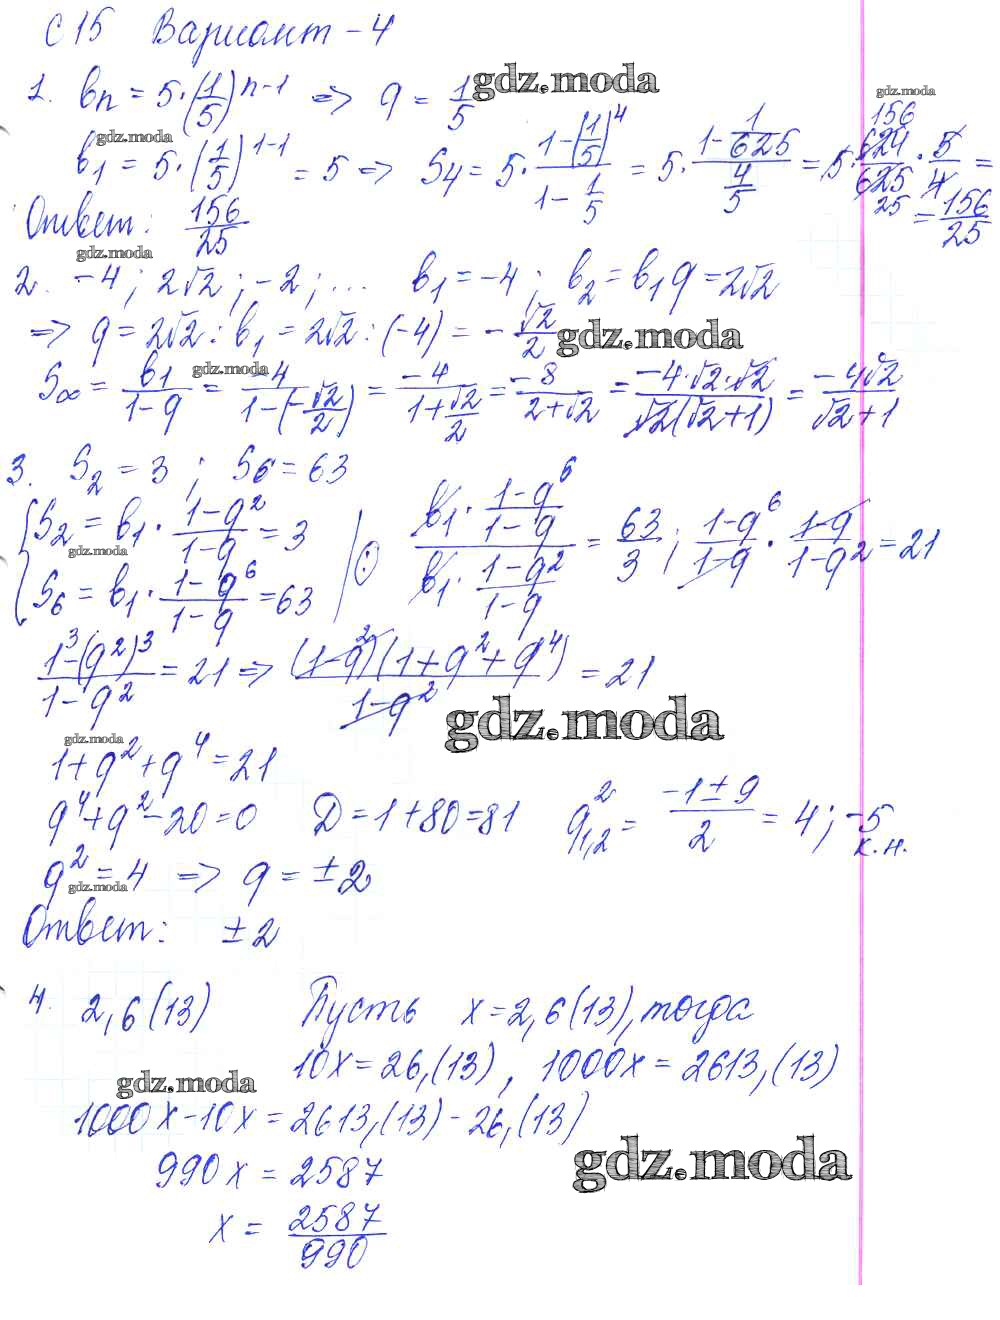 С 15 Вариант – 4
1. bn = 5·(1/5)^(n-1) => q = 1/5
b1 = 5·(1/5)^(1-1) = 5 => S4 = 5·(1-(1/5)^4)/(1-1/5) = 5·(1-1/625)/(4/5) = 5·624/625·5/4 = 156 25 = 156/25
Ответ: 156/25
2. -4; 2√2; -2; ... b1 = -4; b2 = b1q = 2√2
=> q = 2√2 : b1 = 2√2 : (-4) = -√2/2
S∞ = b1/(1-q) = -4/(1-(-√2/2)) = -4/(1+√2/2) = -8/(2+√2) = -4·√2·√2/(√2(√2+1)) = -4√2/(√2+1)
3. S2 = 3; S6 = 63
{ S2 = b1·(1-q^2)/(1-q) = 3
S6 = b1·(1-q^6)/(1-q) = 63 | (:) (b1·(1-q^6)/(1-q))/(b1·(1-q^2)/(1-q)) = 63/3; (1-q^6)/(1-q)·(1-q)/(1-q^2) = 21
(1^3-(q^2)^3)/(1-q^2) = 21 => (1-q^2)(1+q^2+q^4)/(1-q^2) = 21
1+q^2+q^4 = 21
q^4+q^2-20=0 D = 1+80=81 q^2 1,2 = (-1±9)/2 = 4; -5
к.н.
q^2 = 4 => q = ±2
Ответ: ±2
4. 2,6(13) Пусть x = 2,6(13), тогда
10x = 26,(13), 1000x = 2613,(13)
1000x-10x = 2613,(13) - 26,(13)
990x = 2587
x = 2587/990
gdz.moda
gdz.moda
gdz.moda
gdz.moda
gdz.moda
gdz.moda
gdz.moda
gdz.moda
gdz.moda
gdz.moda
gdz.moda
gdz.moda